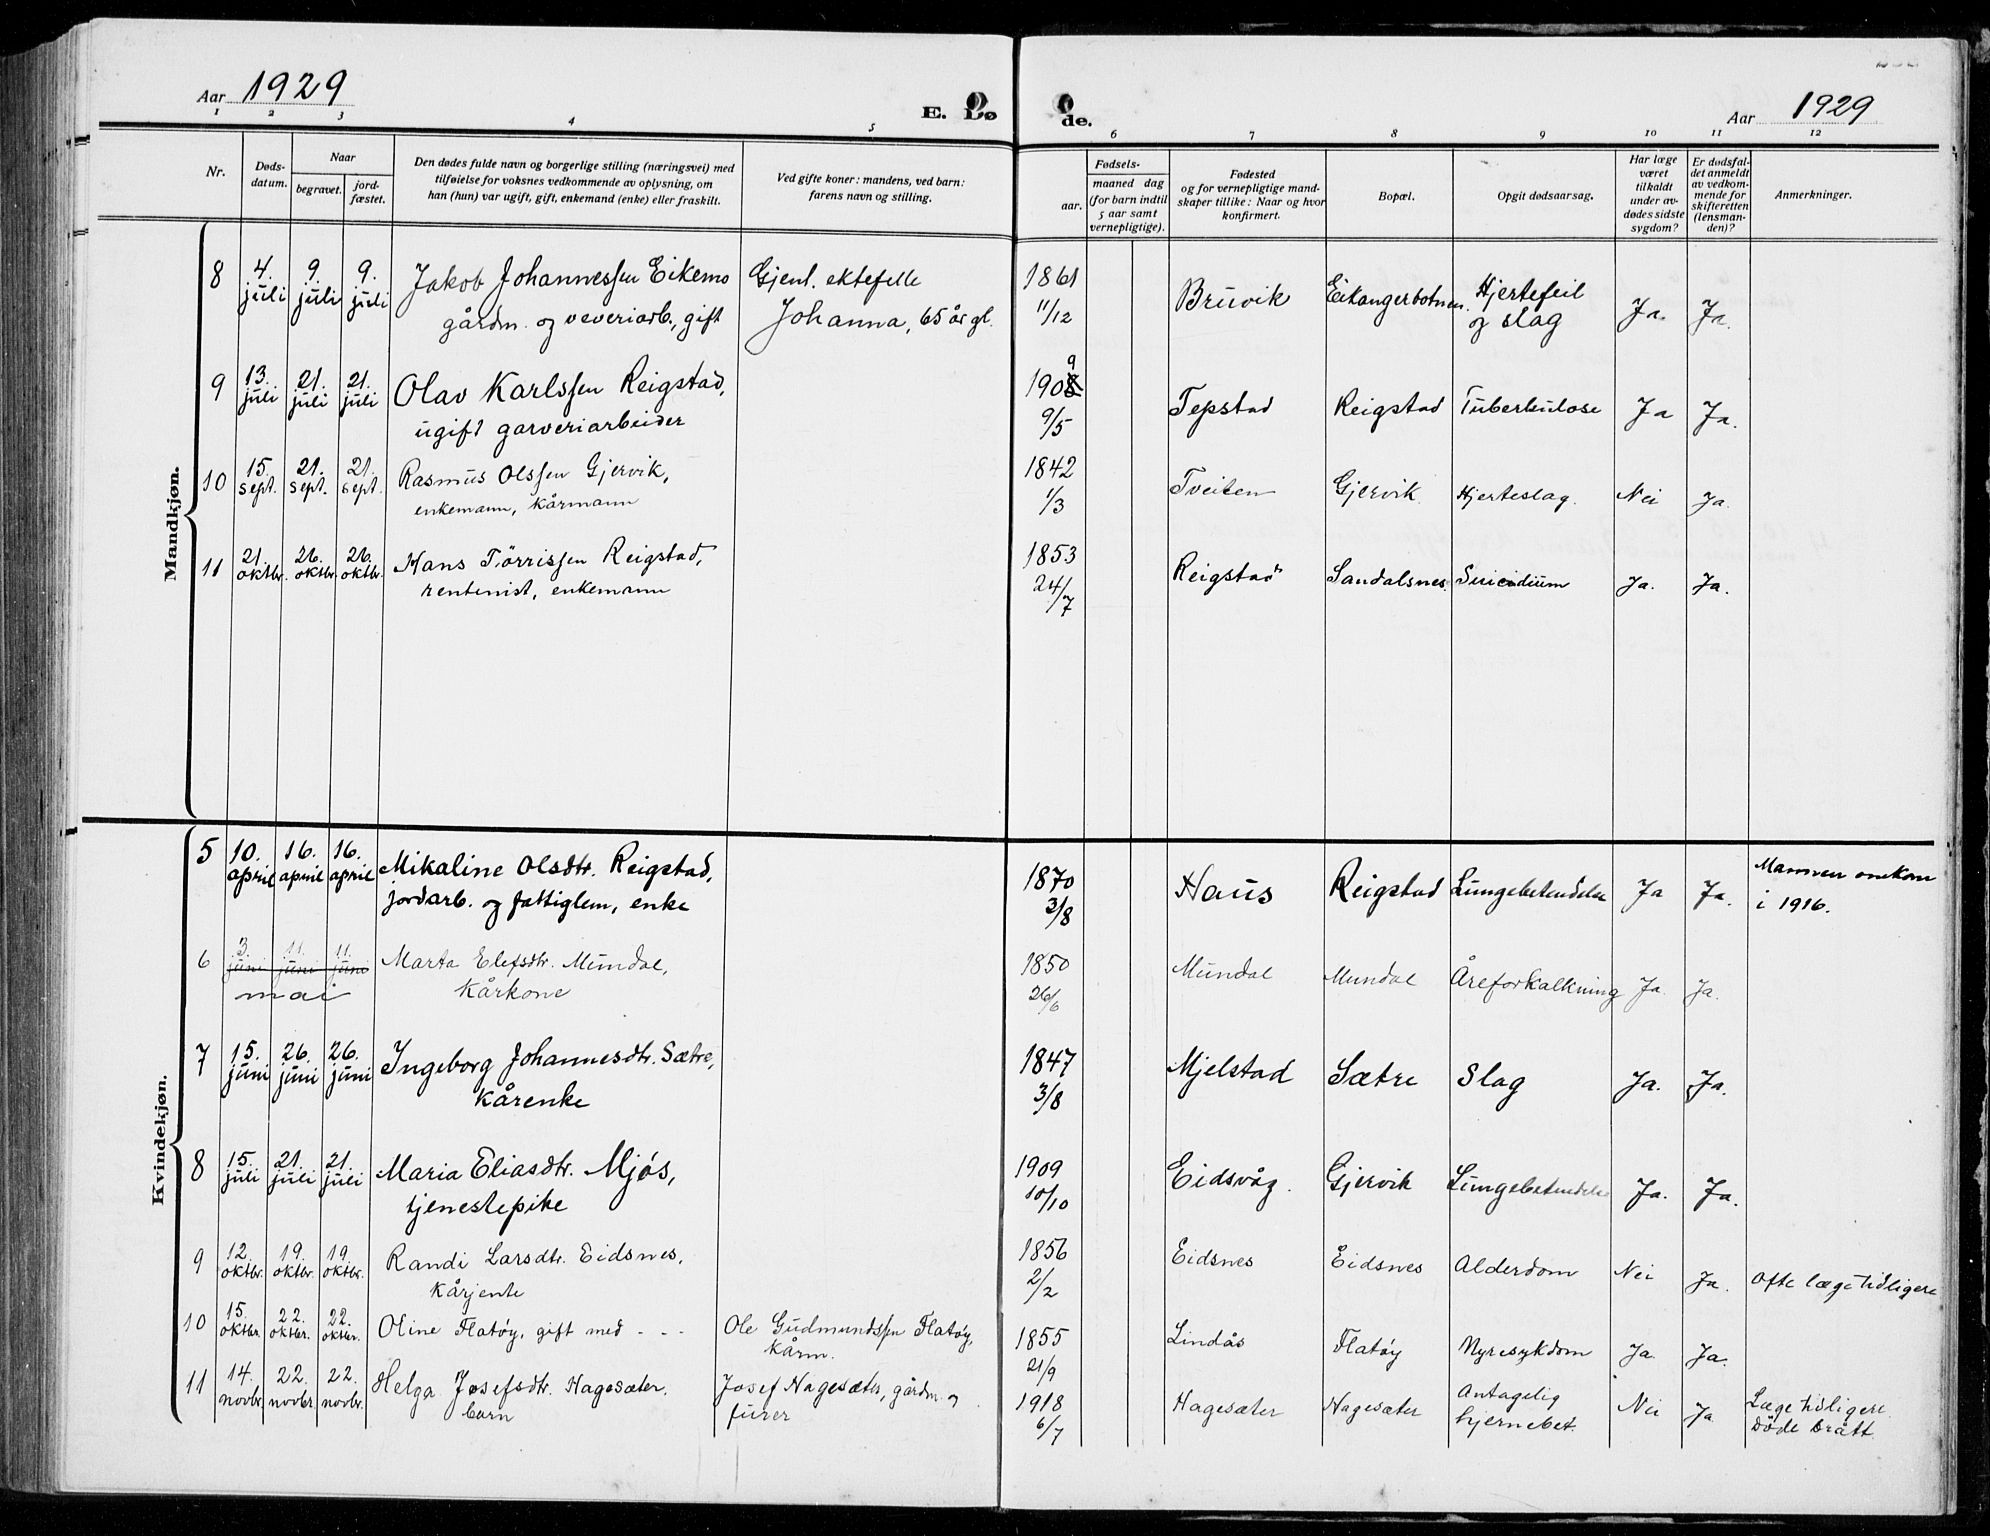 Aar 1929
E. Dø
de.
Aar 1929
1 2 3 4 5 6 7 8 9 10 11 12
Nr.
Døds-
datum.
Naar
begravet.
jord-
fæstet.
Den dødes fulde navn og borgerlige stilling (næringsvei) med
tilføielse for voksnes vedkommende av oplysning, om
han (hun) var ugift, gift, enkemand (enke) eller fraskilt.
Ved gifte koner: mandens, ved barn:
farens navn og stilling.
Fødsels-
aar.
maaned dag
(for barn indtil
5 aar samt
vernepligtige).
Fødested
og for vernepligtige mand-
skaper tillike: Naar og hvor
konfirmert.
Bopæl.
Opgit dødsaarsag.
Har læge
været
tilkaldt
under av-
dødes sidste
sygdom?
Er dødsfal-
det anmeldt
av vedkom-
mende for
skifteretten
(lensman-
den)?
Anmerkninger.
Mandkjøn.
8 4. juli 9. juli 9. juli Jakob Johannessen Eikemo
gårdm. og veveriarb., gift
Gjenl. ektefelle
Johanna, 65 år gl.
1861
11/12
Bruvik Eikangerbotnen. Hjertefeil
og slag
Ja. Ja.
9 13. juli 21. juli 21. juli Olav Karlssen Reigstad,
ugift garveriarbeider
1909
9/5
Tepstad Reigstad Tuberkulose Ja Ja.
10 15. sept. 21. sept. 21. sept. Rasmus Olssen Gjervik,
enkemann, kårmann
1842
1/3
Tveiten Gjervik Hjerteslag. Nei Ja.
11 21. oktbr. 26. oktbr. 26. oktbr. Hans Tørrissen Reigstad,
rentenist, enkemann
1853
24/7
Reigstad Sandalsnes. Suicidium Ja. Ja.
Kvindekjøn.
5 10. april 16. april 16. april Mikaline Olsdtr. Reigstad,
jordarb. og fattiglem, enke
1870
3/8
Haus Reigstad Lungebetendelse Ja Ja. Mannen omkom
i 1916.
6 3. juni 11. juni 11. juni Marta Elefsdtr. Mundal,
mai kårkone
1850
26/6
Mundal Mundal Åreforkalkning Ja. Ja.
7 15. juni 26. juni 26. juni Ingeborg Johannesdtr. Sætre,
kårenke
1847
3/8
Mjelstad Sætre Slag Ja. Ja.
8 15. juli 21. juli 21. juli Maria Eliasdtr. Mjøs,
tjenestepike
1909
10/10
Eidsvåg. Gjervik Lungebetendelse Ja. Ja.
9 12. oktbr. 19. oktbr. 19. oktbr. Randi Larsdtr. Eidsnes,
kårjente
1856
2/2
Eidsnes Eidsnes Alderdom Nei Ja. Ofte læge tidligere
10 15. oktbr. 22. oktbr. 22. oktbr. Oline Flatøy, gift med - - -
Ole Gudmundssen Flatøy,
kårm.
1855
21/9
Lindås Flatøy Nyresykdom Ja. Ja.
11 14. novbr. 22. novbr. 22. novbr. Helga Josefsdtr. Hagesæter.
barn
Josef Hagesæter, gårdm. og
furer
1918
6/7
Hagesæter Hagesæter Antagelig
hjernebet.
Nei Ja Læge tidligere.
Døde brått.